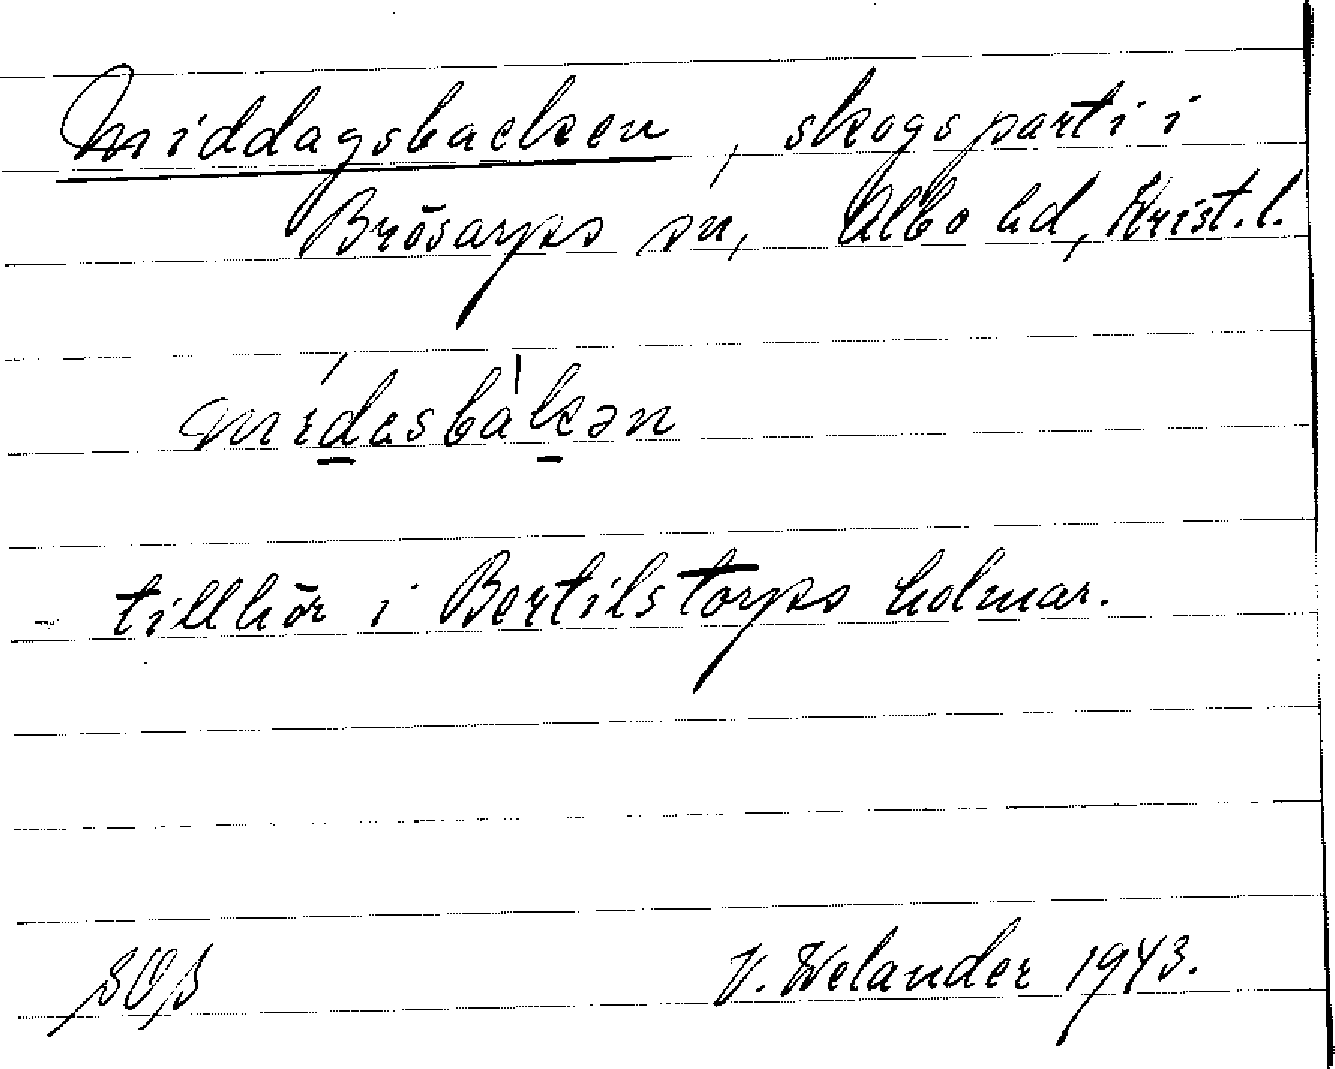 Middagsbacken, skogsparti i
Brösarps sn, Albo hd, Krist. l.
mídasbàkən
tillhör i Bertilstorps holmar.
V. Welander 1943.